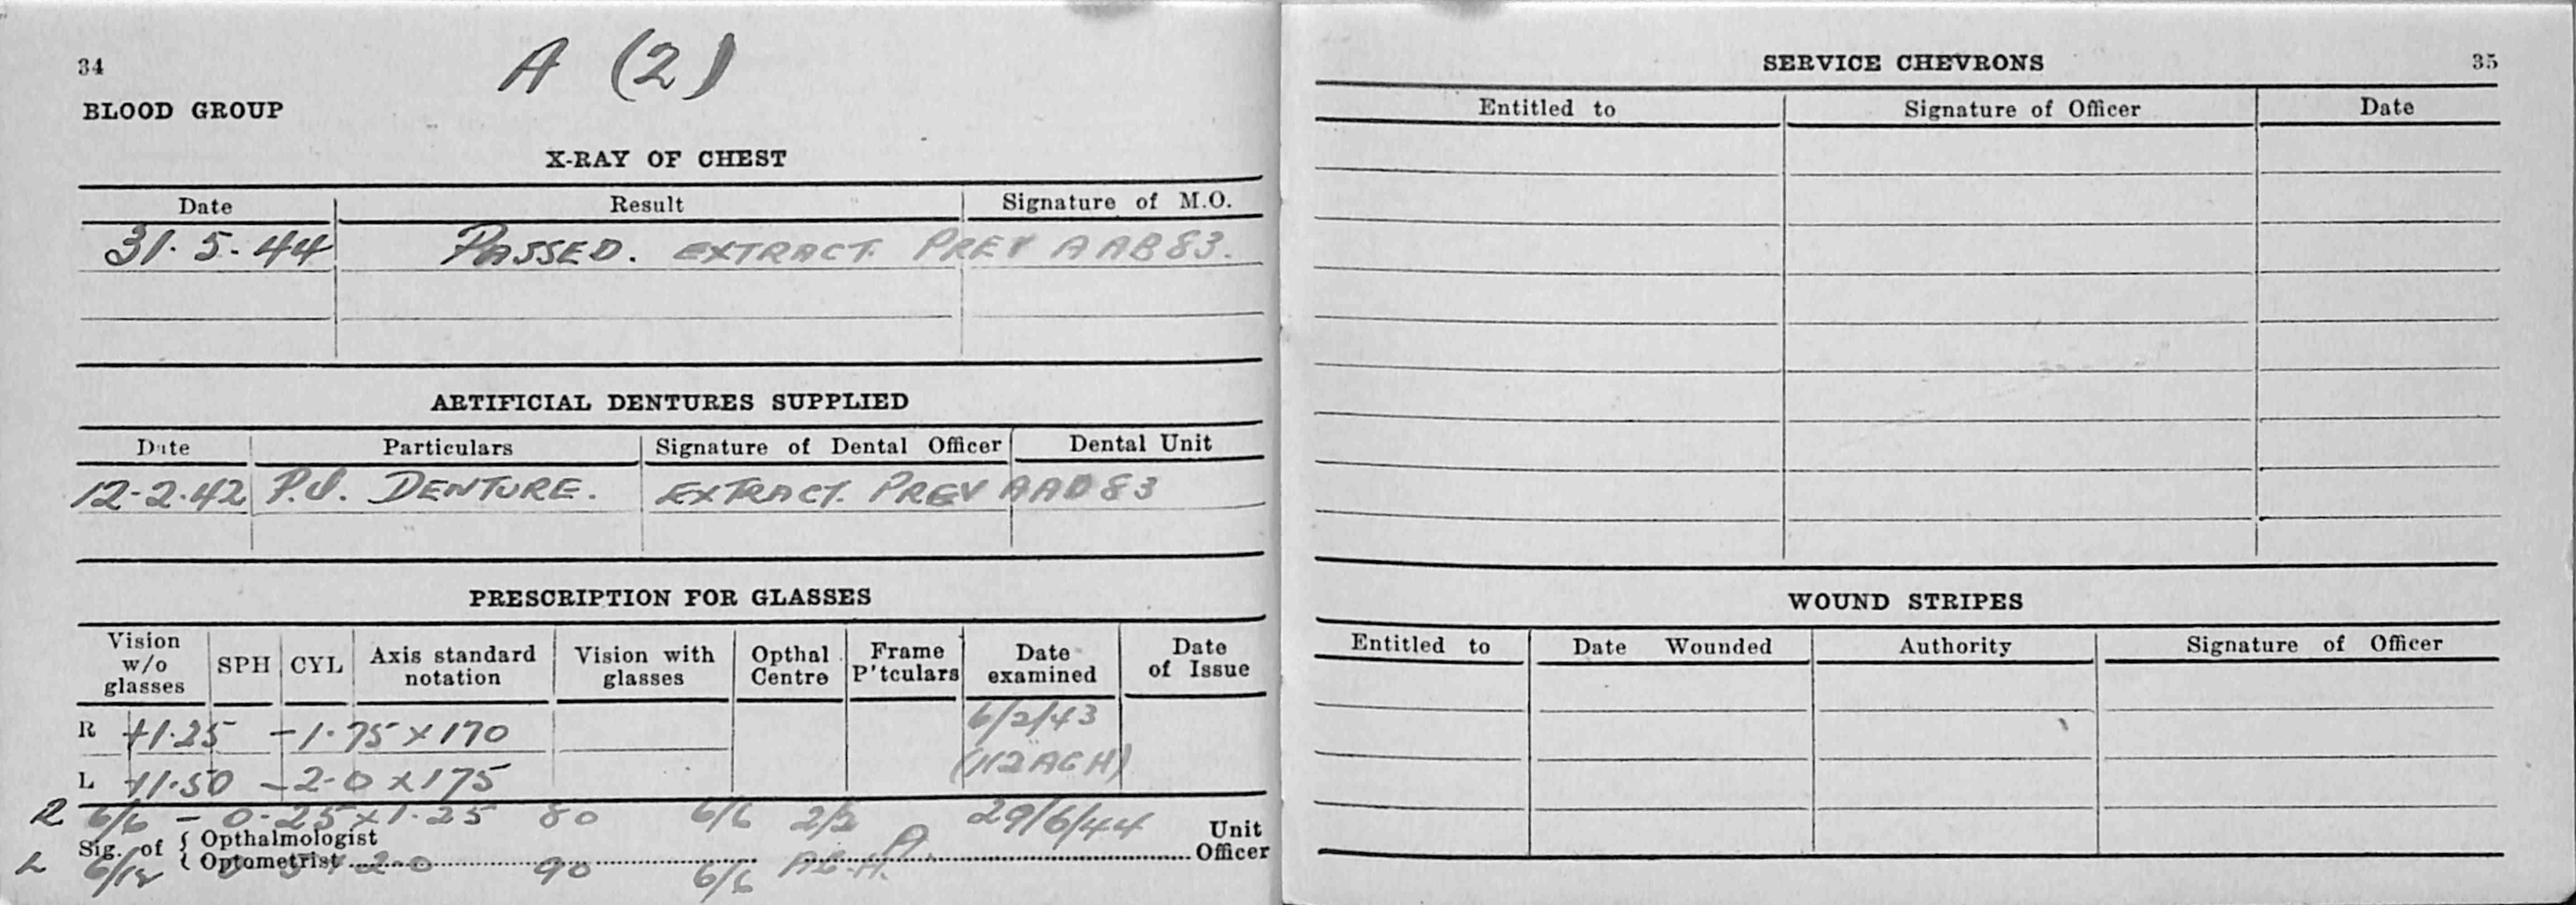 34
A (2)
BLOOD GROUP
X-RAY OF CHEST
Date Result Signature of M.O.
31.5.44 PASSED. EXTRACT. PREV A AB 83.
ARTIFICIAL DENTURES SUPPLIED
Date Particulars Signature of Dental Officer Dental Unit
12-2-42 P.U. DENTURE. EXTRACT. PREV AAB 83
PRESCRIPTION FOR GLASSES
Vision w/o glasses SPH CYL Axis standard notation Vision with glasses Opthal Centre Frame P'tculars Date examined Date of Issue
R +1.25 -1.75 x 170 6/2/43
(112 AGH)
L +1.50 -2.0 x 175
R 6/6 - 0.25 x 1.25 80 6/6 2/2 29/6/44
Sig. of { Opthalmologist Unit
{ Optometrist Officer
L 6/12 2.0 90 6/6 A.G.H.
35
SERVICE CHEVRONS
Entitled to Signature of Officer Date
WOUND STRIPES
Entitled to Date Wounded Authority Signature of Officer